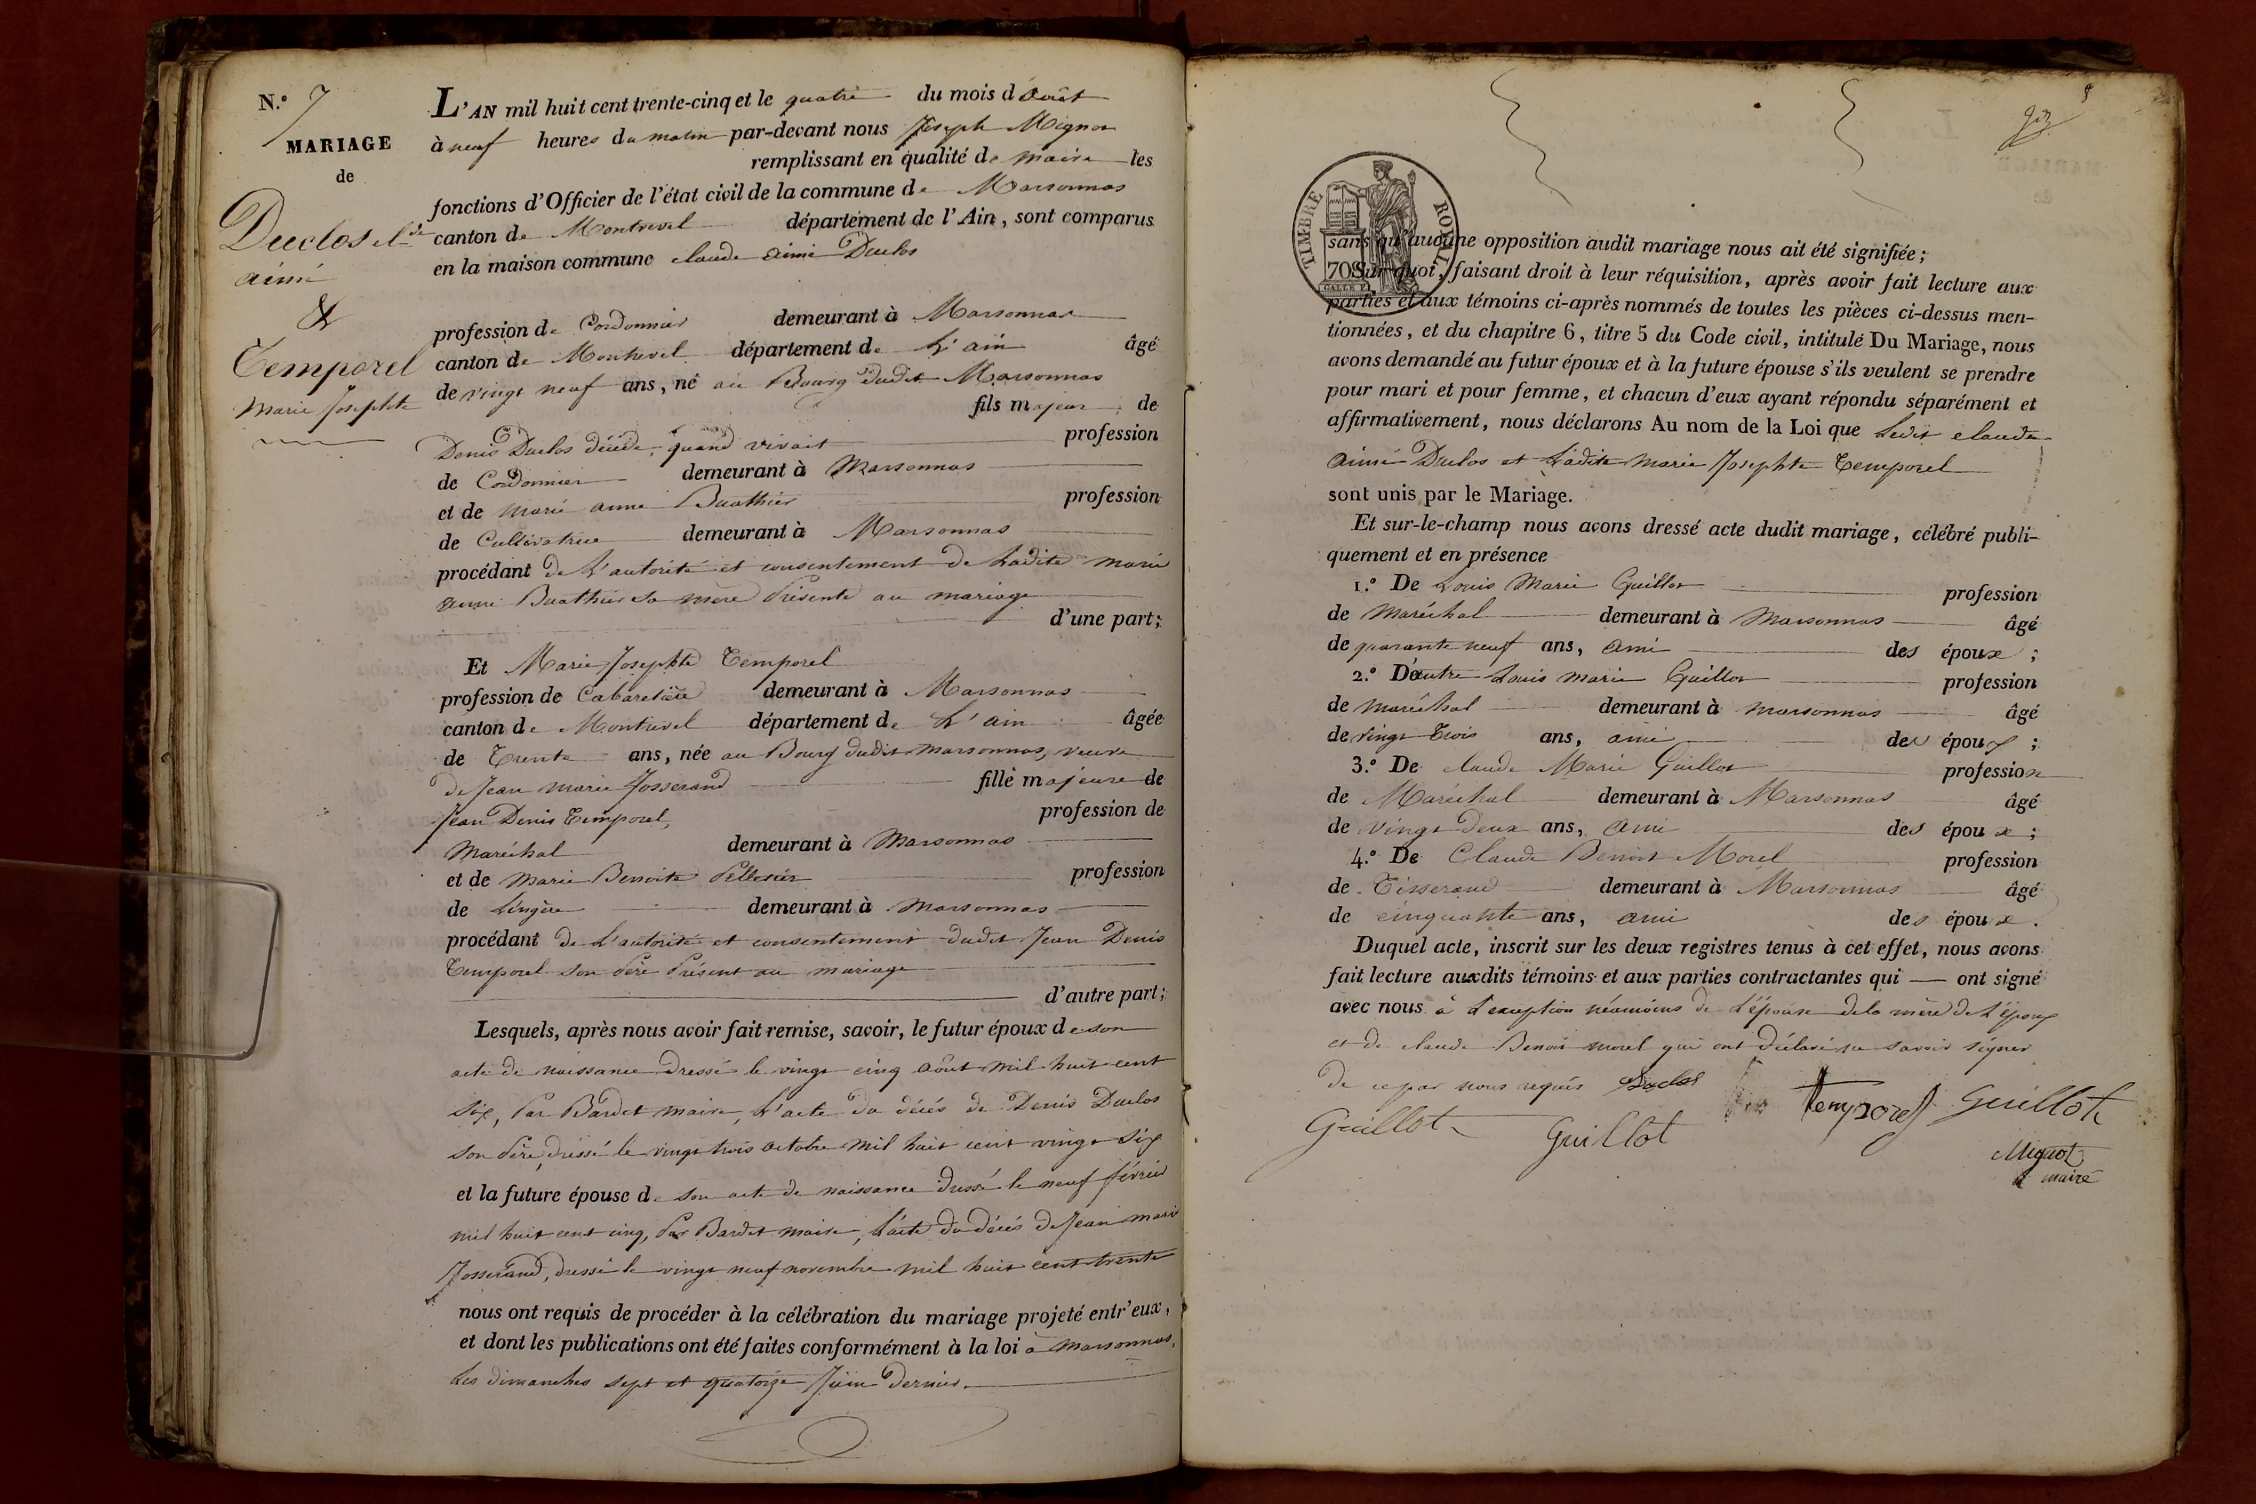 N.° 7
MARIAGE
de
Duclos cl.de
aimé
&
Temporel
Marie Josephte
L'AN mil huit cent trente-cinq et le quatre du mois d'août
à neuf heures du matin par-devant nous Joseph Mignot
remplissant en qualité de maire les
fonctions d'Officier de l'état civil de la commune de Marsonnas
canton de Montrevel département de l'Ain, sont comparus
en la maison commune claude aimé Duclos
profession de Cordonnier demeurant à Marsonnas
canton de Montrevel département de L'ain âgé
de vingt neuf ans, né au Bourg dudit Marsonnas
fils majeur de
Denis Duclos décédé, quand vivait profession
de Cordonnier demeurant à Marsonnas
et de Marie anne Buathier profession
de Cultivatrice demeurant à Marsonnas
procédant de L'autorité et consentement de Ladite marie
anne Buathier sa mère Présente au mariage
d'une part;
Et Marie Josephte Temporel
profession de Cabaretière demeurant à Marsonnas
canton de Montrevel département de L'ain âgée
de Trente ans, née au Bourg dudit Marsonnas, veuve
de Jean Marie Josserand fille majeure de
Jean Denis Temporel, profession de
Maréchal demeurant à Marsonnas
et de Marie Benoite Pelletier profession
de Lingère demeurant à Marsonnas
procédant de L'autorité et consentement dudit Jean Denis
Temporel son Père Présent au mariage
d'autre part;
Lesquels, après nous avoir fait remise, savoir, le futur époux de son
acte de naissance dressé le vingt cinq août mil huit cent
six, Par Bardet maire, L'acte du décés de Denis Duclos
son Père, dressé le vingt trois octobre mil huit cent vingt six
et la future épouse de son acte de naissance dressé le neuf février
mil huit cent cinq, Par Bardet maire, L'acte du décés de Jean marie
Josserand, dressé le vingt neuf novembre mil huit cent trente
nous ont requis de procéder à la célébration du mariage projeté entr'eux,
et dont les publications ont été faites conformément à la loi à Marsonnas,
Les dimanches sept et quatorze Juin dernier.
TIMBRE ROYAL
70
sans qu'aucune opposition audit mariage nous ait été signifiée;
Sur quoi, faisant droit à leur réquisition, après avoir fait lecture aux
parties et aux témoins ci-après nommés de toutes les pièces ci-dessus men-
tionnées, et du chapitre 6, titre 5 du Code civil, intitulé Du Mariage, nous
avons demandé au futur époux et à la future épouse s'ils veulent se prendre
pour mari et pour femme, et chacun d'eux ayant répondu séparément et
affirmativement, nous déclarons Au nom de la Loi que Ledit claude
aimé Duclos et Ladite Marie Josephte Temporel
sont unis par le Mariage.
Et sur-le-champ nous avons dressé acte dudit mariage, célébré publi-
quement et en présence
1.° De Louis Marie Guillot profession
de Maréchal demeurant à Marsonnas âgé
de quarante neuf ans, ami des époux ;
2.° D'autre Louis Marie Guillot profession
de Maréchal demeurant à Marsonnas âgé
de vingt Trois ans, ami des époux ;
3.° De claude Marie Guillot profession
de Maréchal demeurant à Marsonnas âgé
de vingt Deux ans, ami des époux ;
4.° De Claude Benoit Morel profession
de Tisserand demeurant à Marsonnas âgé
de cinquante ans, ami des époux.
Duquel acte, inscrit sur les deux registres tenus à cet effet, nous avons
fait lecture auxdits témoins et aux parties contractantes qui — ont signé
avec nous à L'exception néamoins de L'épouse de la mère de L'époux
et de claude Benoit Morel qui ont déclaré ne savoir signer
de ce par nous requis Duclos Temporel Guillot
Guillot Guillot
Mignot
maire